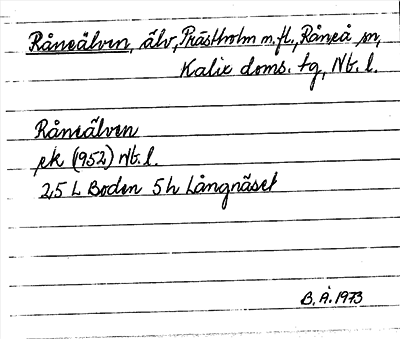 Råneälven, älv, Prästholm m.fl., Råneå sn,
Kalix doms. tg, Nb. l.
Råneälven
ek (1952) Nb. l.
25 L Boden 5h Långnäset
B. Å. 1973